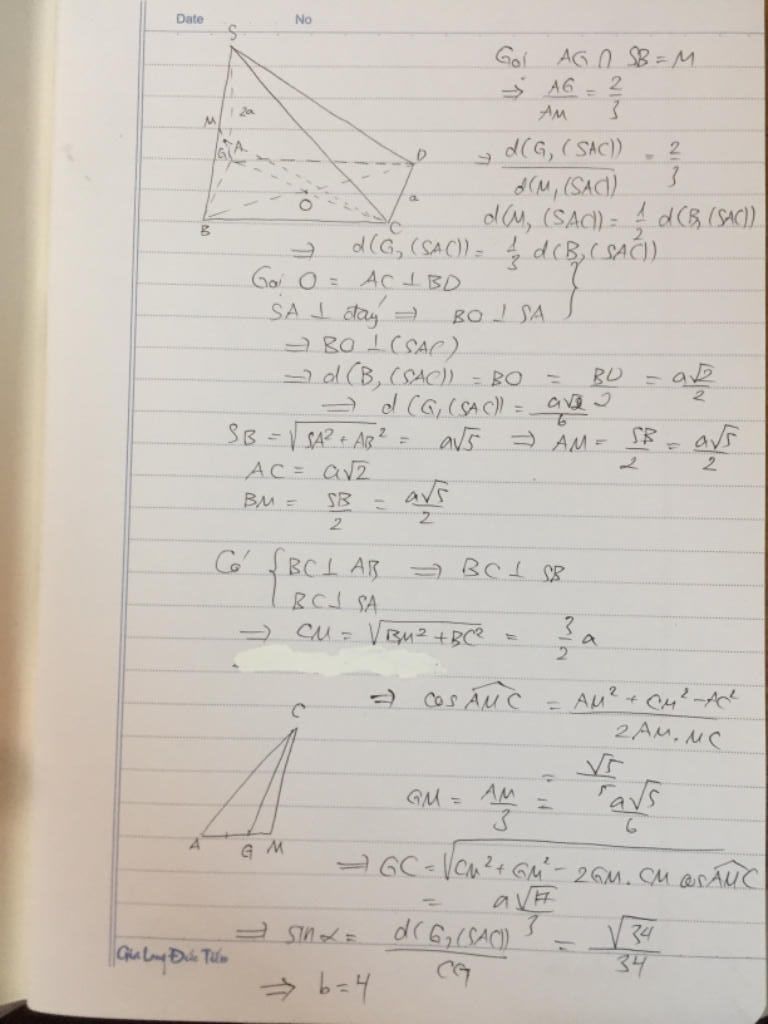 Date No
S
Gọi AG ∩ SB = M
⇒ AG/AM = 2/3
2a
M
A
G
D
⇒ d(G, (SAC))/d(M, (SAC)) = 2/3
a
O
B
C
d(M, (SAC)) = 1/2 d(B, (SAC))
⇒ d(G, (SAC)) = 1/3 d(B, (SAC))
Gọi O = AC ⊥ BD
SA ⊥ đáy ⇒ BO ⊥ SA }
⇒ BO ⊥ (SAC)
⇒ d(B, (SAC)) = BO = BD/2 = a√2/2
⇒ d(G, (SAC)) = a√2/6
SB = √(SA² + AB²) = a√5 ⇒ AM = SB/2 = a√5/2
AC = a√2
BM = SB/2 = a√5/2
Có { BC ⊥ AB ⇒ BC ⊥ SB
BC ⊥ SA
⇒ CM = √(BM² + BC²) = 3/2 a
⇒ cos AMC = (AM² + CM² - AC²)/(2AM.MC)
C
= √5/5
GM = AM/3 = a√5/6
A G M
⇒ GC = √(CM² + GM² - 2GM.CM cos AMC)
= a√17/3
⇒ sin α = d(G, (SAC))/CG = √34/34
Gia Long Đức Tiến
⇒ b = 4